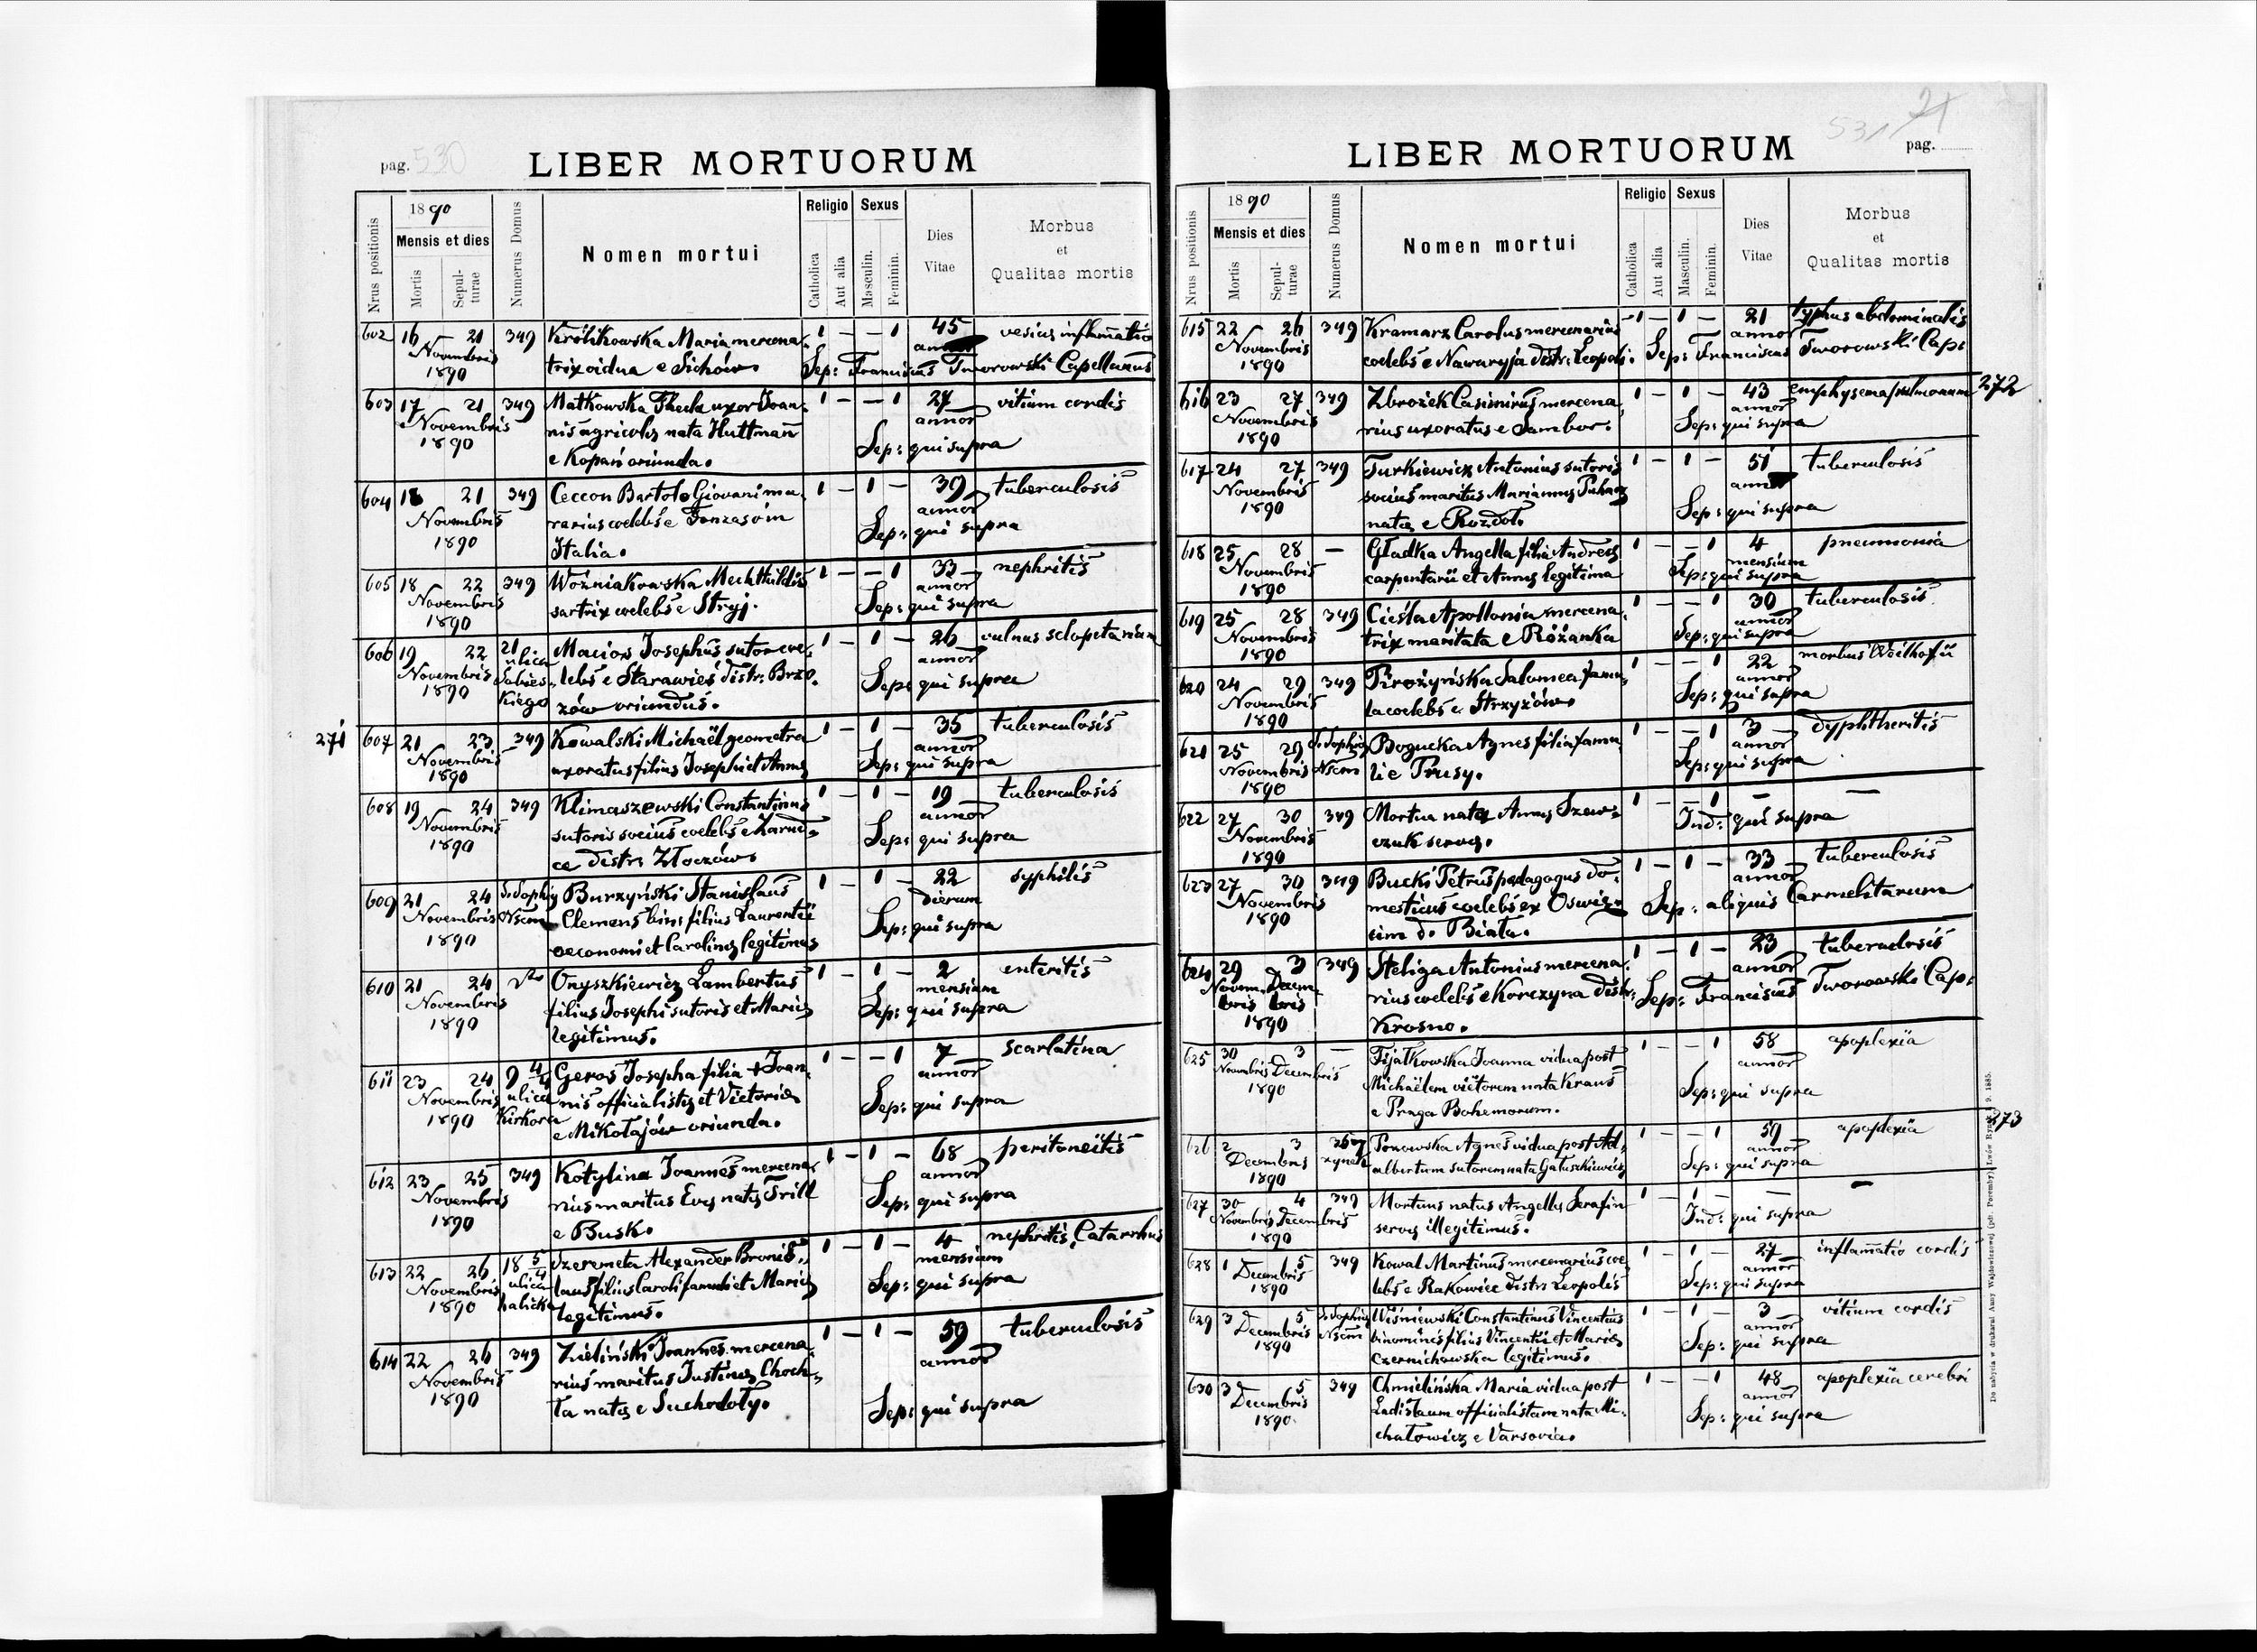 pag. 530
LIBER MORTUORUM
Nrus positionis
1890
Mensis et dies
Mortis
Sepul-
turae
Numerus Domus
Nomen mortui
Religio
Catholica
Aut alia
Sexus
Masculin.
Feminin.
Dies
Vitae
Morbus
et
Qualitas mortis
602 16 21 349 Królikowska Maria mercena- 1 — — 1 45 vesicæ inflamatio
Novembris trix vidua e Sichów. annor
1890 Sep: Franciscus Tworowski Capellanus
603 17 21 349 Matkowska Thecla uxor Joan- 1 — — 1 27 vitium cordis
Novembris nis agricolæ nata Huttman annor
1890 e Kopań oriunda. Sep: qui supra
604 18 21 349 Ceccon Bartolo Giovani mu- 1 — 1 — 39 tuberculosis
Novembris rarius coelebs e Fonzaso in annor
1890 Italia. Sep: qui supra
605 18 22 349 Woźniakowska Mechthildis 1 — — 1 33 nephritis
Novembris sartrix coelebs e Stryj. annor
1890 Sep: qui supra
606 19 22 21 Macior Josephus sutor coe- 1 — 1 — 26 vulnus sclopetarium
Novembris ulica Sobies- lebs e Starawieś distr: Brzo- annor
1890 kiego zów oriundus. Sep: qui supra
271 607 21 23 349 Kowalski Michaël geometra 1 — 1 — 35 tuberculosis
Novembris uxoratus filius Josephi et Annæ annor
1890 Sep: qui supra
608 19 24 349 Klimaszewski Constantinus 1 — 1 — 19 tuberculosis
Novembris sutoris socius coelebs e Zarud- annor
1890 ce distr: Złoczów. Sep: qui supra
609 21 24 S. Sophiæ Burzyński Stanislaus 1 — 1 — 22 syphilis
Novembris Nscom Clemens bin: filius Laurentii dierum
1890 oeconomi et Carolinæ legitimus Sep: qui supra
610 21 24 Onyszkiewicz Lambertus 1 — 1 — 2 enteritis
Novembris filius Josephi sutoris et Mariæ mensium
1890 legitimus. Sep: qui supra
611 23 24 9 4/4 Geros Josepha filia + Joan- 1 — — 1 7 scarlatina
Novembris ulica nis officialistæ et Victoriæ annor
1890 Kirkora e Mikołajów oriunda. Sep: qui supra
612 23 25 349 Kotylina Joannes mercena- 1 — 1 — 68 peritoneitis
Novembris rius maritus Evæ natæ Trill annor
1890 e Busk. Sep: qui supra
613 22 26 18 5/4 Szeremeta Alexander Bronis- 1 — 1 — 4 nephritis, Catarrhus
Novembris ulica laus filius Caroli famuli et Mariæ mensium
1890 halicka legitimus. Sep: qui supra
614 22 26 349 Zieliński Joannes mercena- 1 — 1 — 59 tuberculosis
Novembris rius maritus Justinæ Choch- annor
1890 ła natæ e Suchodoły. Sep: qui supra
531 21
LIBER MORTUORUM
pag.
Nrus positionis
1890
Mensis et dies
Mortis
Sepul-
turae
Numerus Domus
Nomen mortui
Religio
Catholica
Aut alia
Sexus
Masculin.
Feminin.
Dies
Vitae
Morbus
et
Qualitas mortis
615 22 26 349 Kramarz Carolus mercenarius 1 — 1 — 21 typhus abdominalis
Novembris coelebs e Nawaryja distr: Leopoli. annor
1890 Sep: Franciscus Tworowski Cap:
616 23 27 349 Zbrożek Casimirus mercena- 1 — 1 — 43 emphysema pulmonum 272
Novembris rius uxoratus e Sambor. annor
1890 Sep: qui supra
617 24 27 349 Turkiewicz Antonius sutoris 1 — 1 — 51 tuberculosis
Novembris socius maritus Mariannæ Puhacz annor
1890 natæ e Rozdoł. Sep: qui supra
618 25 28 — Gładka Angella filia Andreæ 1 — — 1 4 pneumonia
Novembris carpentarii et Annæ legitima mensium
1890 Sep: qui supra
619 25 28 349 Cieśla Apollonia mercena- 1 — — 1 30 tuberculosis
Novembris trix maritata e Różanka annor
1890 Sep: qui supra
620 24 29 349 Pirożyńska Salomea famu- 1 — — 1 22 morbus Weilhofii
Novembris la coelebs e Strzyżów. annor
1890 Sep: qui supra
621 25 29 S. Sophiæ Bogucka Agnes filia famu- 1 — — 1 3 dyphtheritis
Novembris Nscom li e Prusy. annor
1890 Sep: qui supra
622 27 30 349 Mortua nata Annæ Szew- 1 — — 1 — —
Novembris czuk servæ. Ind: qui supra
1890
623 27 30 349 Bucki Petrus pædagogus do- 1 — 1 — 33 tuberculosis
Novembris mesticus coelebs ex Oswię- annor
1890 cim d. Biała. Sep: aliquis Carmelitarum
624 29 3 349 Steliga Antonius mercena- 1 — 1 — 23 tuberculosis
Novem- Decem- rius coelebs e Korczyna distr: annor
bris bris Krosno. Sep: Franciscus Tworowski Cap:
1890
625 30 3 — Fijałkowska Joanna vidua post 1 — — 1 58 apoplexia
Novembris Decembris Michäelem viëtorem nata Kraus annor
1890 e Praga Bohemorum. Sep: qui supra
626 2 3 Ponowska Agnes vidua post Ad- 1 — — 1 59 apoplexia 273
Decembris albertum sutorem nata Gałuszkiewicz annor
1890 Sep: qui supra
627 30 4 349 Mortuus natus Angellæ Serafin 1 — 1 — — —
Novembris Decembris servæ illegitimus. Ind: qui supra
1890
628 1 5 349 Kowal Martinus mercenarius coe- 1 — 1 — 27 inflamatio cordis
Decembris lebs e Rakowiec distr: Leopolis annor
1890 Sep: qui supra
629 3 5 S. Sophiæ Wiśniewski Constantinus Vincentius 1 — 1 — 3 vitium cordis
Decembris Nscom binominis filius Vincentii et Mariæ annor
1890 Czernichowska legitimus. Sep: qui supra
630 3 5 349 Chmielińska Maria vidua post 1 — — 1 48 apoplexia cerebri
Decembris Ladislaum officialistam nata Mi- annor
1890 chałowicz e Varsovia. Sep: qui supra